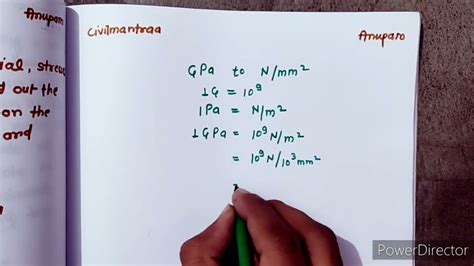 Anupam
ial, stress
d out the
on the
and
Civilmantraa
Anupam
GPa to N/mm²
1G = 10⁹
1Pa = N/m²
1GPa = 10⁹ N/m²
= 10⁹ N/10³ mm²
PowerDirector